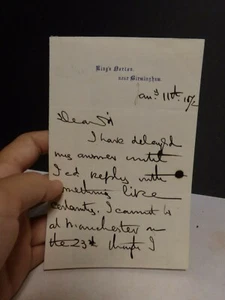 King's Norton,
near Birmingham.
Jan 11th
Dear Sir
I have delayed
my answer until
I cd reply with
something like
I cannot be
at Manchester on
the 23rd though I